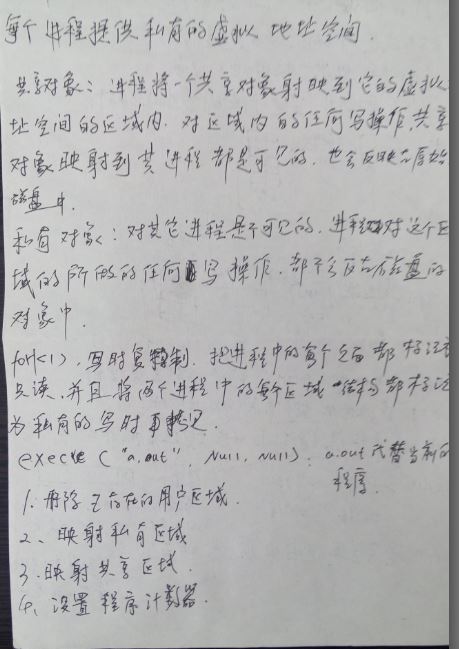 每个进程提供私有的虚拟地址空间.
共享对象: 进程将一个共享对象射映到它的虚拟
址空间的区域内. 对区域内的任何写操作,共享
对象映射到其进程都是可见的. 也会反映在原始
磁盘中.
私有对象: 对其它进程是不可见的. 进程对这个区
域的所做的任何写操作. 都不会反在磁盘的
对象中.
fork(), 写时复制. 把进程中的每个页面都标记
只读. 并且将两个进程中的每个区域结构都标记
为私有的写时
execve ("a.out", NULL, NULL). a.out代替当前的
程序.
1. 删除已存在的用户区域.
2、映射私有区域
3. 映射共享区域.
4. 设置程序计数器.